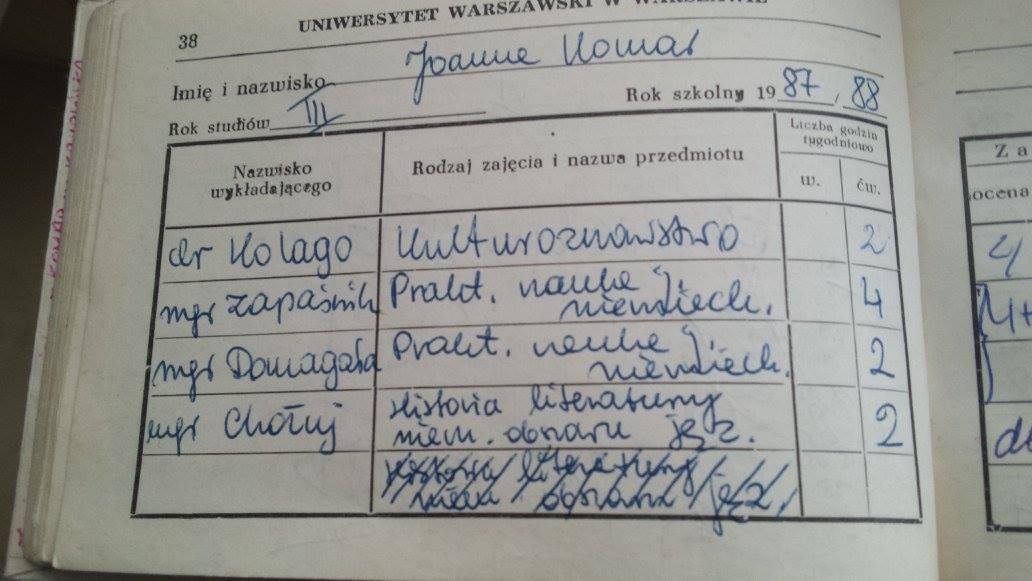 38
UNIWERSYTET WARSZAWSKI W WARSZAWIE
Imię i nazwisko Joanna Komar
Rok studiów III
Rok szkolny 1987/88
Nazwisko wykładającego
Rodzaj zajęcia i nazwa przedmiotu
Liczba godzin tygodniowo
w. ćw.
dr Kolago Kulturoznawstwo 2
mgr Zapaśnik Prakt. nauka j. niemiech. 4
mgr Domagała Prakt. nauka j. niemiech. 2
mgr Chołuj Historia literatury niem. obszaru jęz. 2
Historia literatury
niem. obszaru jęz.
Za
ocena
4
4+